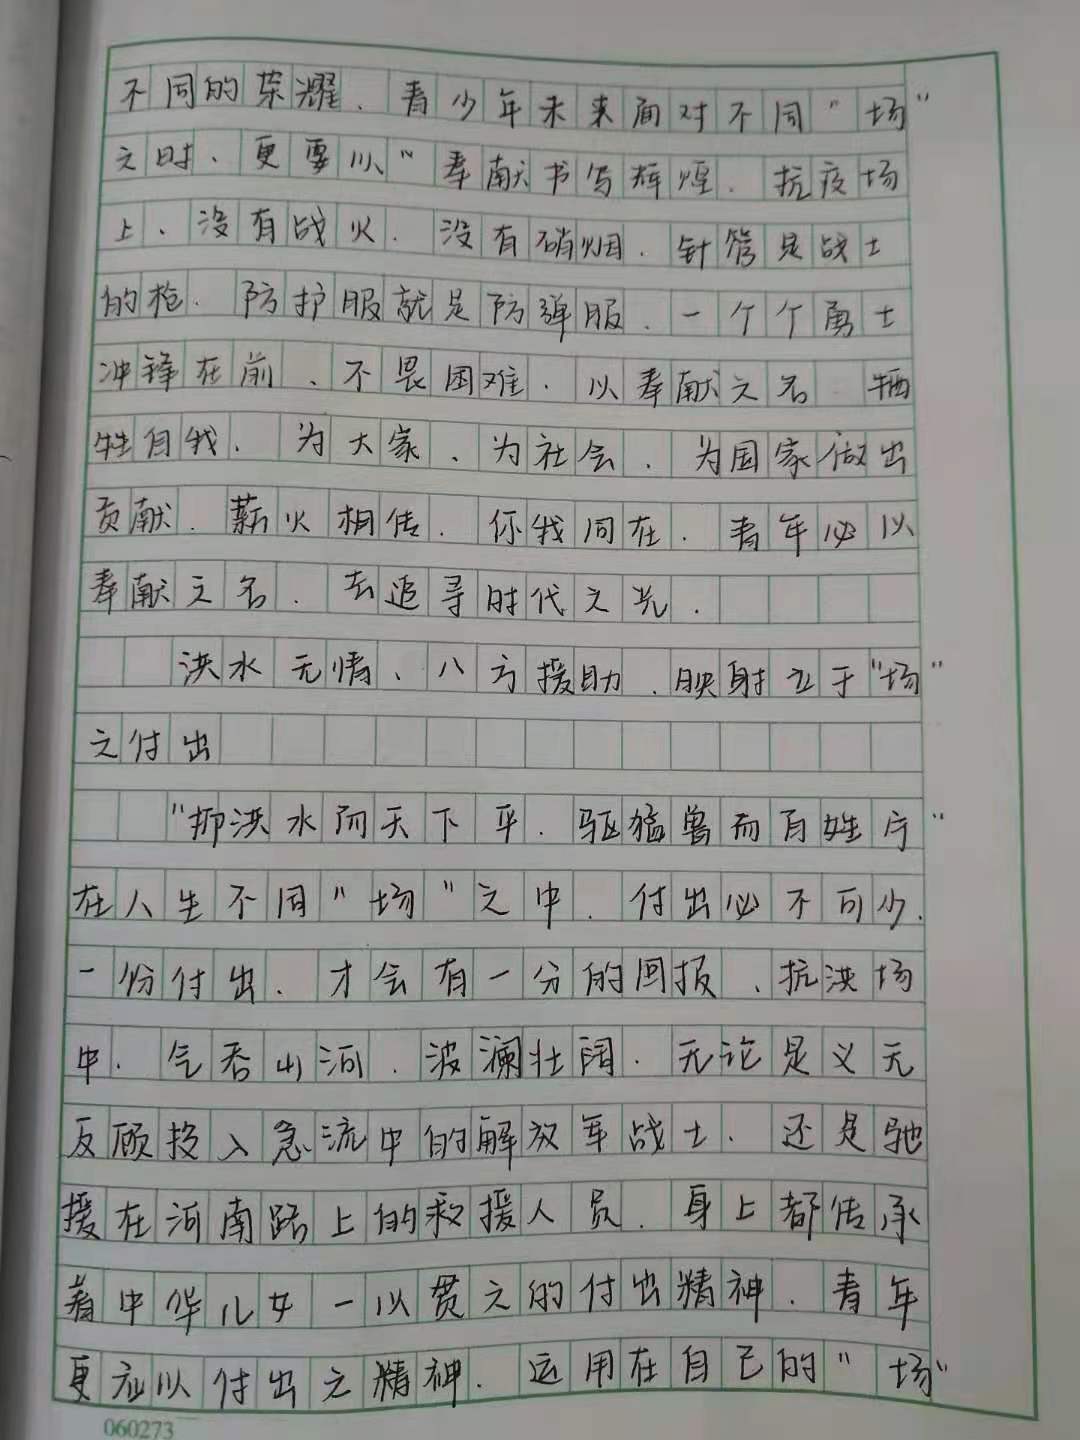 不同的荣耀.青少年未来面对不同"场"
之时、更要以"奉献书写辉煌.抗疫场
上、没有战火.没有硝烟.针管是战士
的枪.防护服就是防弹服.一个个勇士
冲锋在前、不畏困难.以奉献之名.牺
牲自我.为大家、为社会.为国家做出
贡献.薪火相传.你我同在.青年必以
奉献之名.去追寻时代之光.
洪水无情、八方援助.映射立于"场"
之付出
"抑洪水而天下平.驱猛兽而百姓宁"
在人生不同"场"之中.付出必不可少.
一份付出.才会有一分的回报、抗洪场
中.气吞山河.波澜壮阔.无论是义无
反顾投入急流中的解放军战士.还是驰
援在河南路上的救援人员.身上都传承
着中华儿女一以贯之的付出精神.青年
更应以付出之精神.运用在自己的"场"
060273